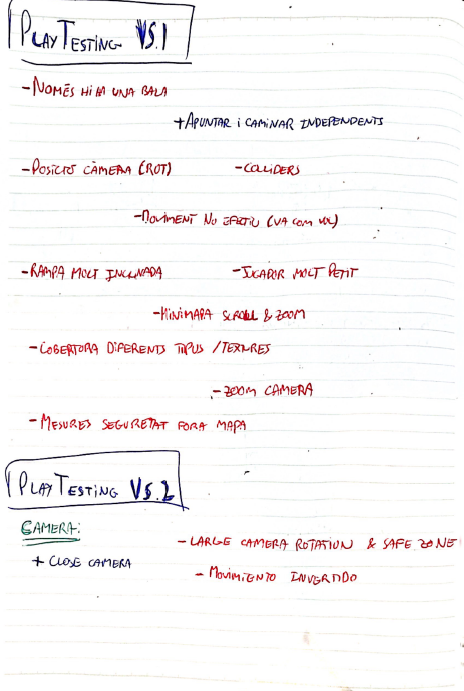 PLAYTESTING VS.1
- NOMÉS HI HA UNA BALA
+ APUNTAR I CAMINAR INDEPENDENTS
- POSICIÓ CÀMERA (ROT) - COLLIDERS
- MOVIMENT NO EFECTIU (VA COM VOL)
- RAMPA MOLT INCLINADA - JUGADOR MOLT PETIT
- MINIMAPA SCROLL & ZOOM
- COBERTURA DIFERENTS TIPUS / TEXTURES
- ZOOM CAMERA
- MESURES SEGURETAT FORA MAPA
PLAYTESTING VS.2
CAMERA:
- LARGE CAMERA ROTATION & SAFE ZONE
+ CLOSE CAMERA
- MOVIMIENTO INVERTIDO